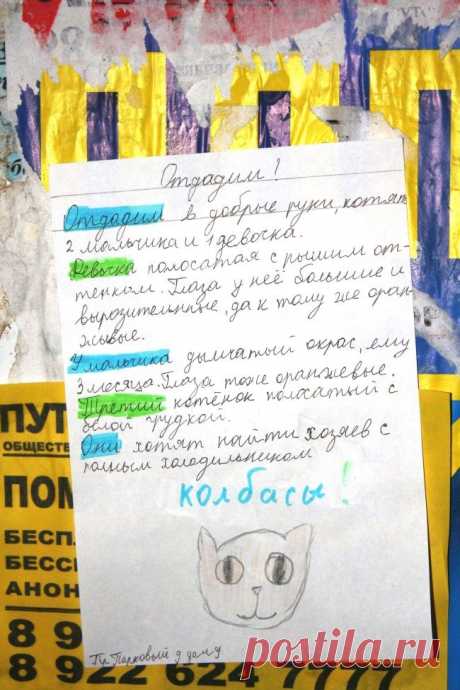 Отдадим!
Отдадим в добрые руки, котят
2 мальчика и 1 девочка.
Девочка полосатая с рыжим от-
тенком. Глаза у неё большие и
вырозительные, да к тому же оран-
жывые.
У мальчика дымчатый окрас, ему
3 месяца. Глаза тоже оранжевые.
Третий котёнок полосатый с
белой грудкой.
Они хотят найти хозяев с
полным холодильником
колбасы!
Пр Парковый
ПУТ
ОБЩЕСТВЕ
ПОМ
БЕСП
БЕСС
АНОН
8 9
8 922 624 7777
postila.ru